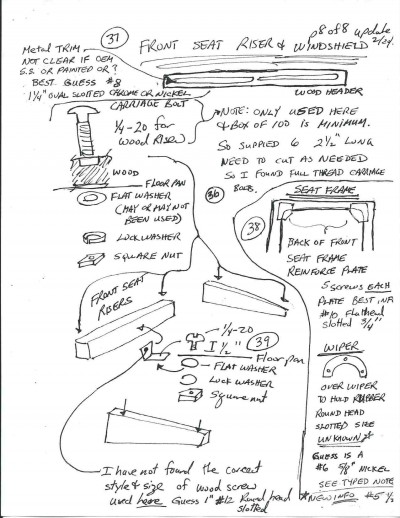 37
p8 of 8 update
2/24
FRONT SEAT RISER & WINDSHIELD
Metal TRIM
NOT CLEAR IF OEM
S.S. OR PAINTED OR?
BEST GUESS #8
1 1/4" OVAL SLOTTED CHROME OR NICKEL
WOOD HEADER
CARRIAGE BOLT
1/4-20 for
Wood Riser
*NOTE: ONLY USED HERE
& BOX OF 100 IS MINIMUM.
So SUPPLIED 6 2 1/2" LONG
NEED TO CUT AS NEEDED
So I FOUND FULL THREAD CARRIAGE
BOLTS.
WOOD
FLOOR PAN
FLAT WASHER
(MAY OR MAY NOT
BEEN USED)
LOCK WASHER
SQUARE NUT
36
38
SEAT FRAME
BACK OF FRONT
SEAT FRAME
REINFORCE PLATE
5 screws EACH
PLATE BEST INFO
#10 Flathead
Slotted 3/4"
FRONT SEAT
RISERS
1/4-20
1 1/2"
39
Floor pan
FLAT WASHER
LOCK WASHER
Square nut
WIPER
OVER WIPER
TO HOLD RUBBER
ROUND HEAD
SLOTTED SIZE
UNKNOWN*
GUESS IS A
#6 5/8" NICKEL
SEE TYPED NOTE
*NEW INFO #5 1/2
I have not found the correct
style & size of wood screw
used here Guess 1" #12 Round head
slotted